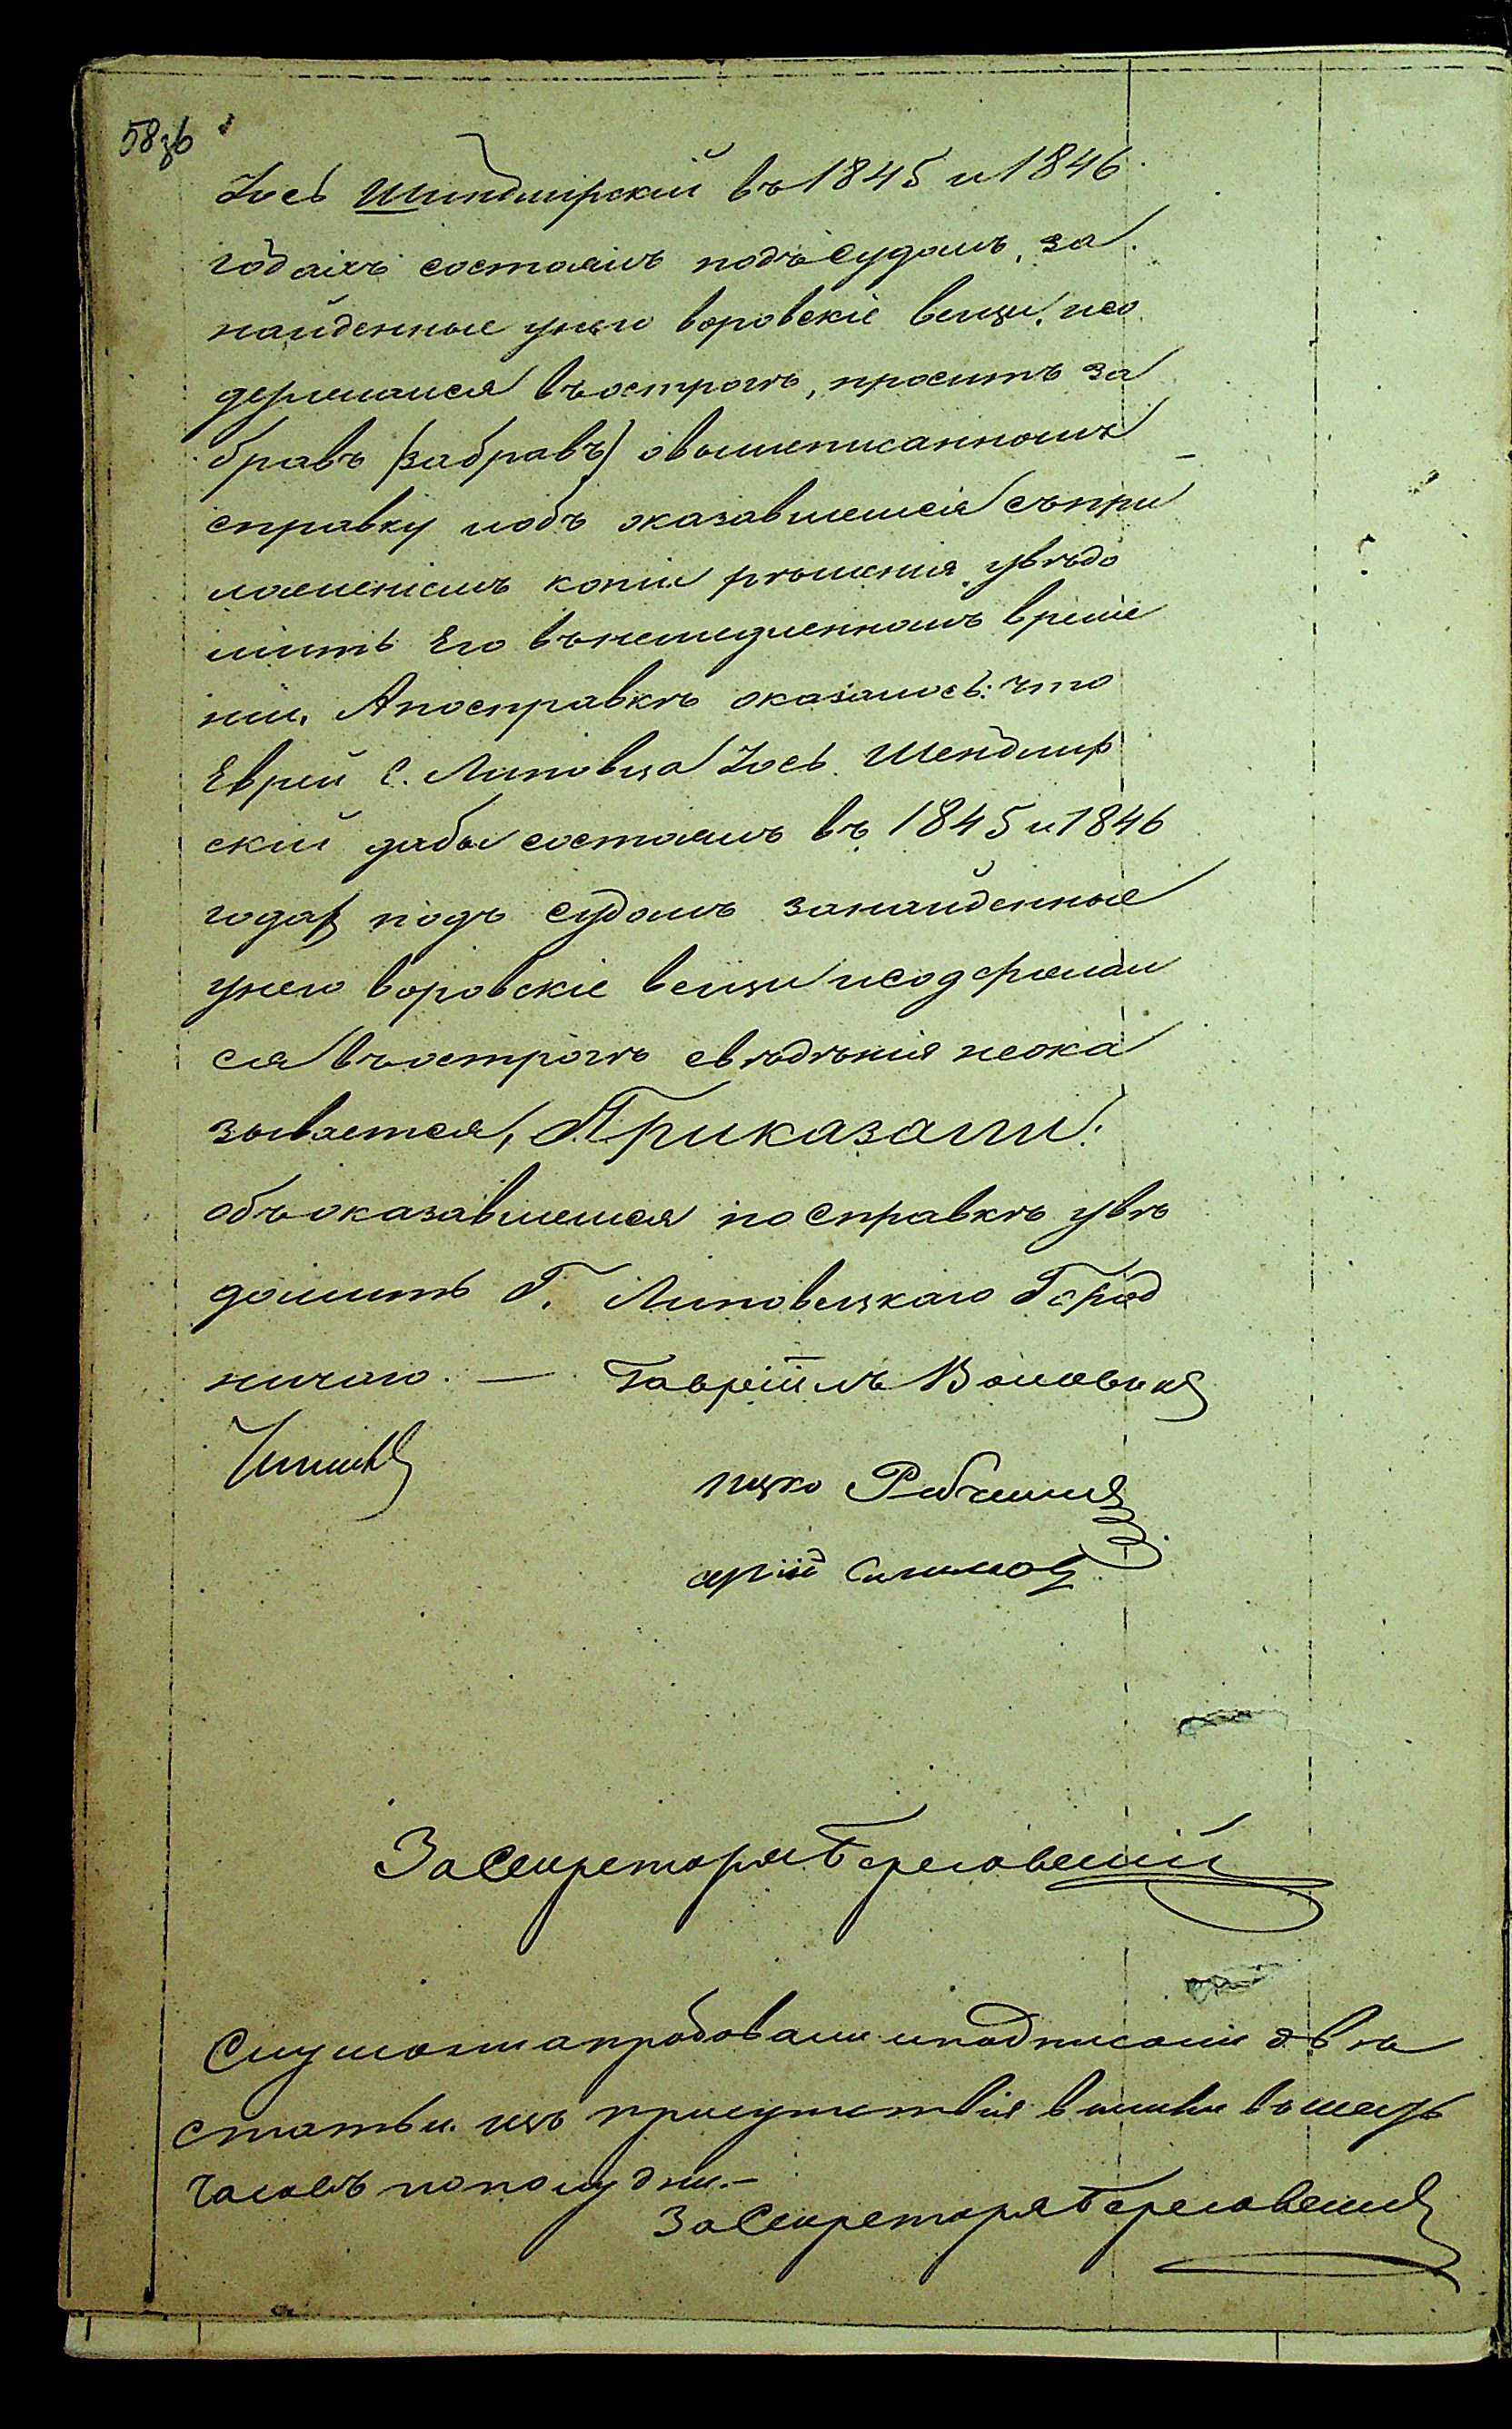 58зв
Іось Шендмирскій въ 1845 и 1846
годахъ состоялъ подъ судомъ, за
найденные унего воровскіе вещи, исо
держался въострогѣ, проситъ за
бравъ (забравъ) овышеписанномъ
справку иобъ оказавшемся съпри
ложеніемъ копіи рѣшенія увѣдо
мить Его внемедленномъ време
ни. Апосправкѣ оказалось: что
Еврей с. Липовца Іось Шендмир
скій дабы состоялъ въ 1845 и 1846
годах подъ судомъ занайденные
унего воровскіе вещи исодержал
ся въострогѣ свѣдѣнія неока
зывается, Приказали:
объоказавшемся посправкѣ увѣ
домить Г. Липовецкаго Город
ничаго. — Гавріилъ
Ицко
За Секретаря Береговскій
Слушали апробовали иподписали двѣ
статьи. изъ присутствія вышли
часовъ пополудни.—
За Секретаря Береговскій